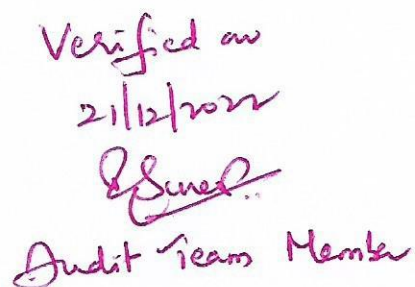 Verified on
21/12/2022
Audit Team Member